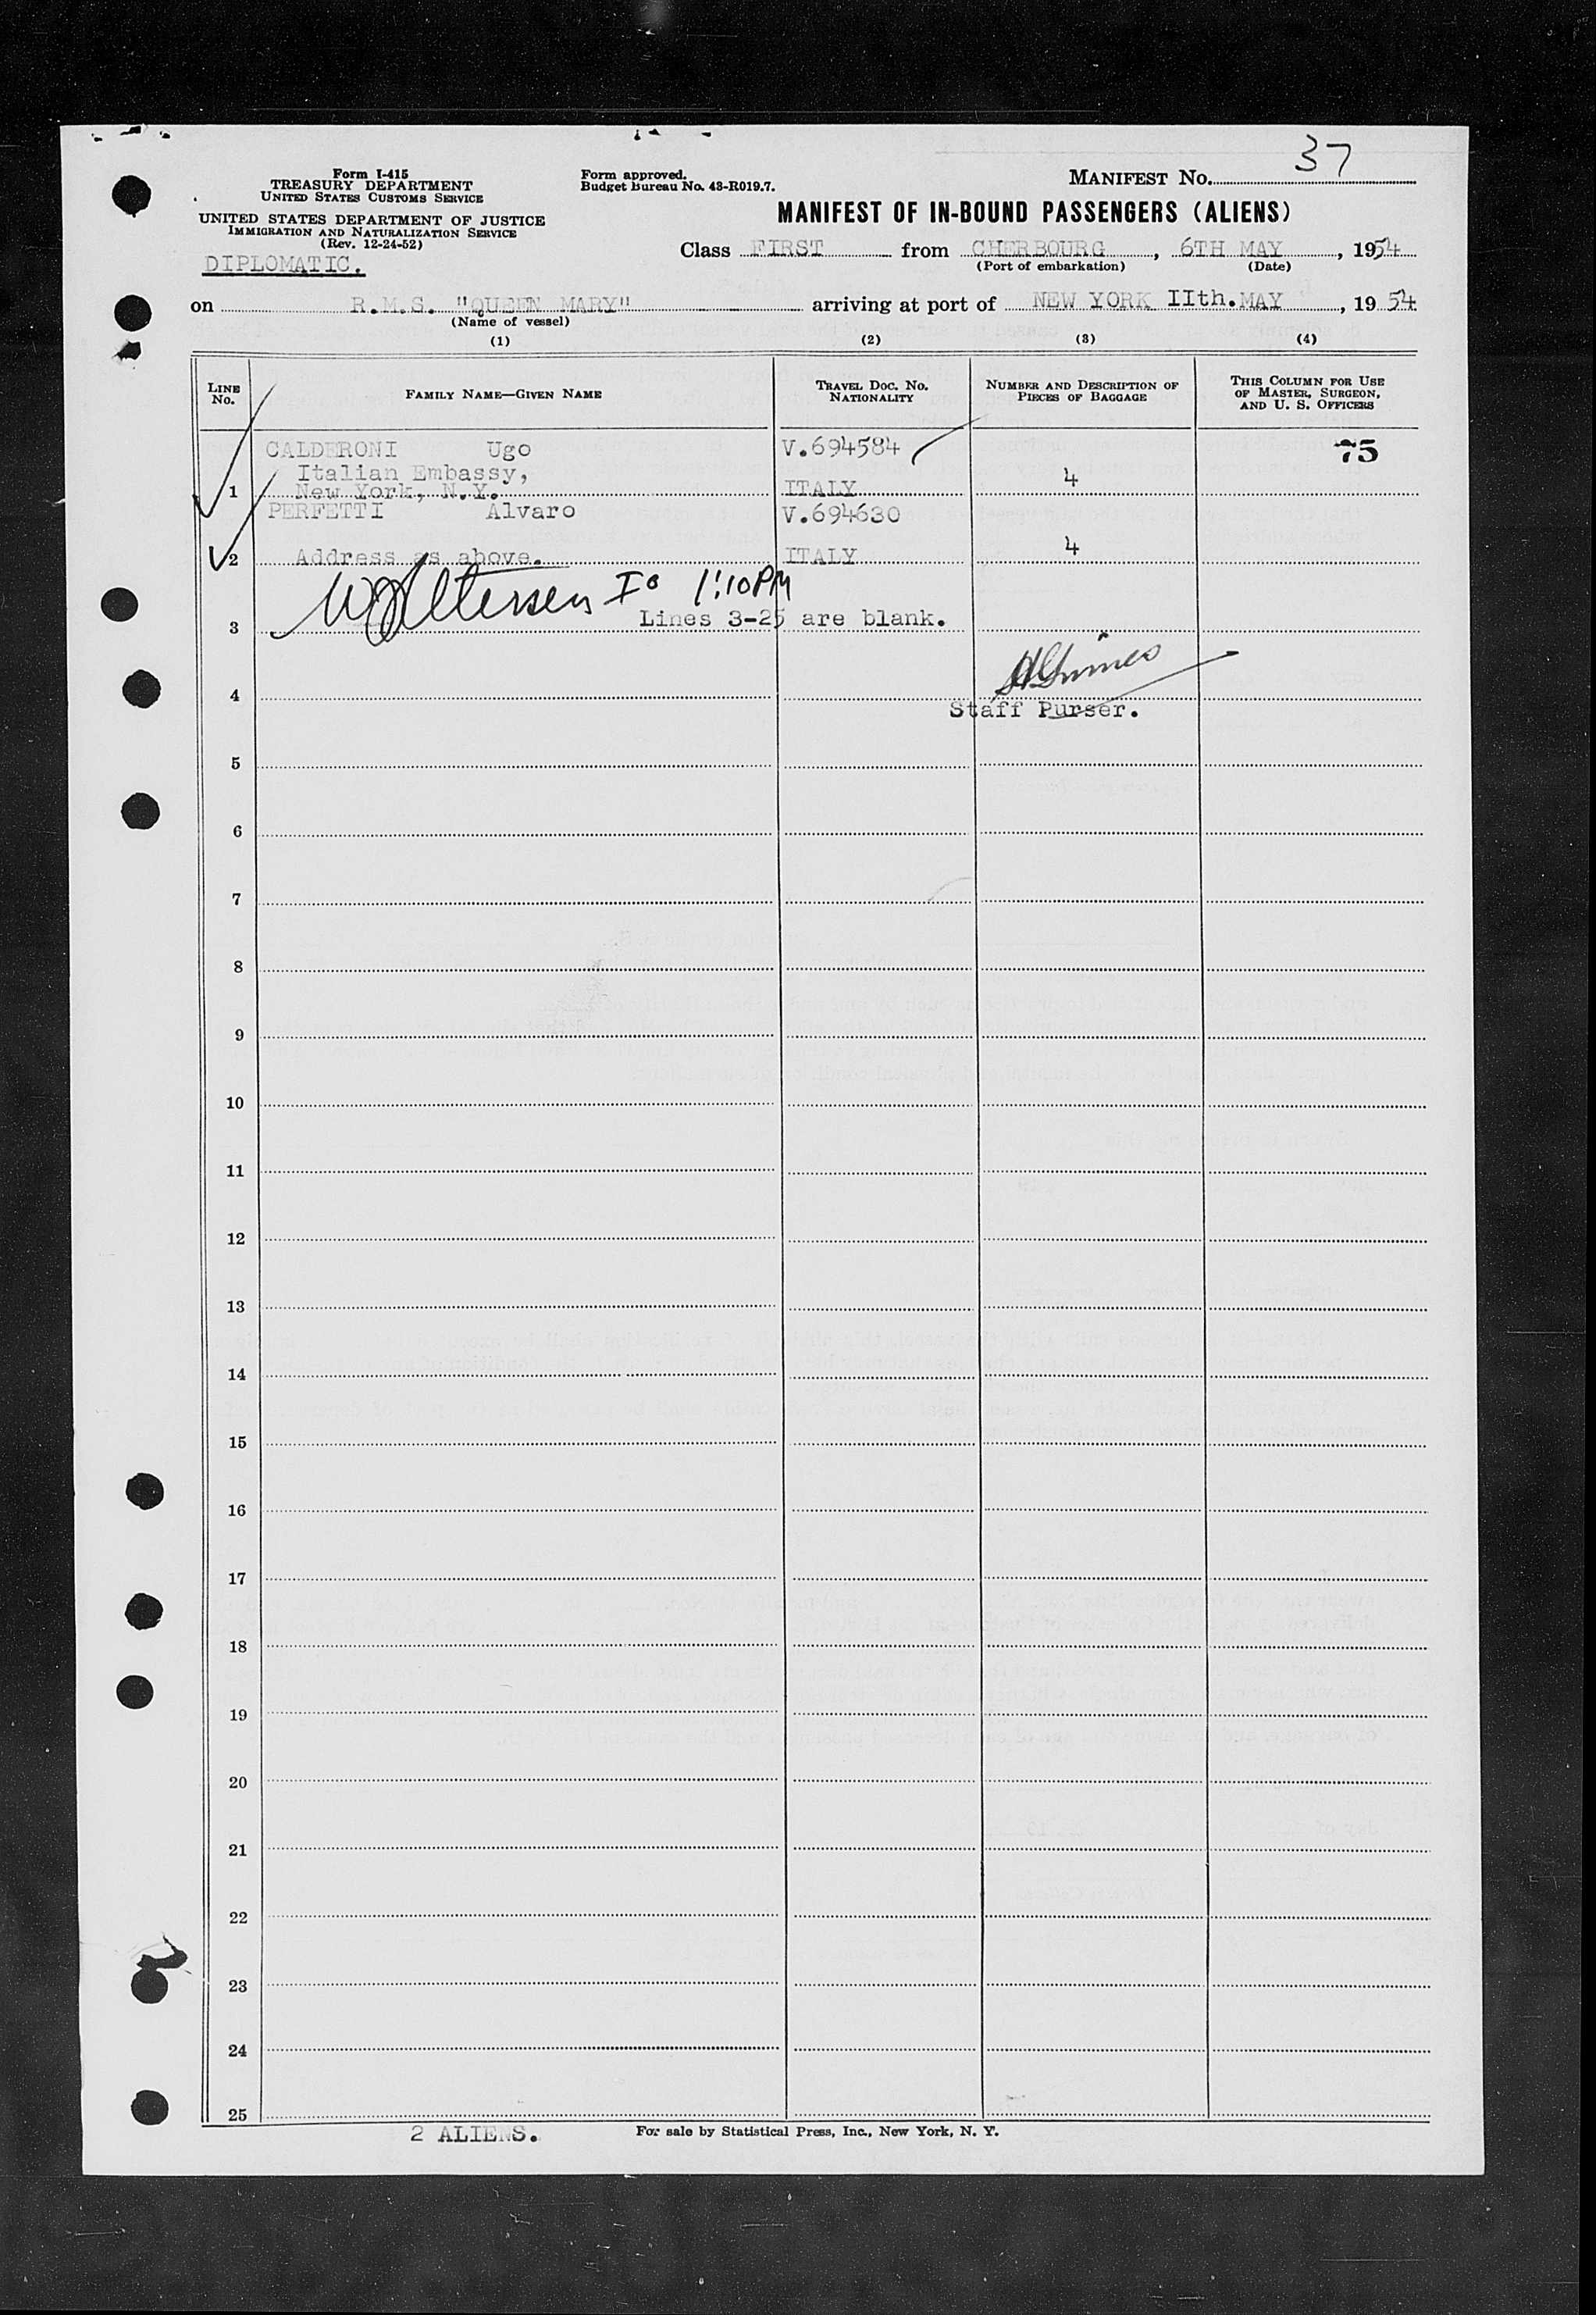 37
Form I-415
TREASURY DEPARTMENT
UNITED STATES CUSTOMS SERVICE
UNITED STATES DEPARTMENT OF JUSTICE
IMMIGRATION AND NATURALIZATION SERVICE
(Rev. 12-24-52)
DIPLOMATIC.
Form approved.
Budget Bureau No. 43-R019.7.
MANIFEST NO.
MANIFEST OF IN-BOUND PASSENGERS (ALIENS)
Class FIRST from CHERBOURG, 6TH MAY, 1954
(Port of embarkation) (Date)
on R.M.S. "QUEEN MARY" arriving at port of NEW YORK IIth.MAY, 1954
(Name of vessel)
(1) (2) (3) (4)
LINE NO. FAMILY NAME—GIVEN NAME TRAVEL DOC. NO. NATIONALITY NUMBER AND DESCRIPTION OF PIECES OF BAGGAGE THIS COLUMN FOR USE OF MASTER, SURGEON, AND U. S. OFFICERS
CALDERONI Ugo V.694584 75
Italian Embassy,
1 New York, N.Y. ITALY 4
PERFETTI Alvaro V.694630
2 Address as above. ITALY 4
1:10PM
3 Lines 3-25 are blank.
4
Staff Purser.
5
6
7
8
9
10
11
12
13
14
15
16
17
18
19
20
21
22
23
24
25
2 ALIENS. For sale by Statistical Press, Inc., New York, N. Y.